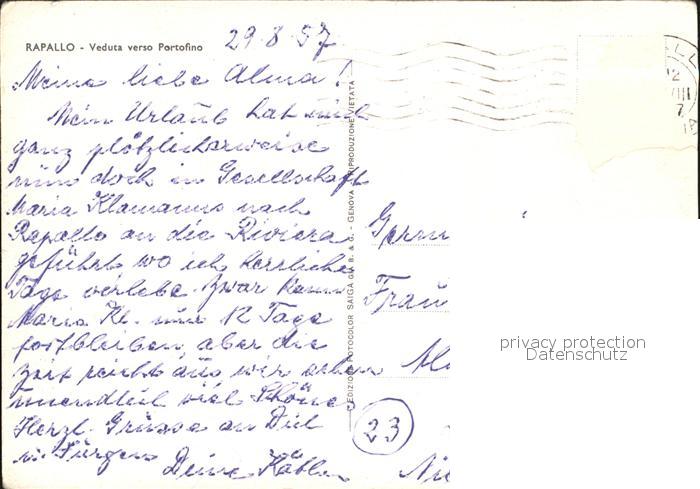 RAPALLO - Veduta verso Portofino
29.8.57
Meine liebe Alma!
Mein Urlaub hat mich
ganz plötzlicherweise
nun doch in Gesellschaft
Maria Klamanns nach
Rapallo an die Riviera
geführt, wo ich herrliche
Tage verlebe. Zwar kann
Maria Kl. nur 12 Tage
fortbleiben, aber die
Zeit reicht aus, wir sehen
unendlich viel Schöne
Herzl. Grüsse an Dich
u. Jürgen
Deine Käthe
EDIZIONE FOTOCOLOR SAIGA G. B. & G. - GENOVA - RIPRODUZIONE VIETATA
Frau
23
privacy protection
Datenschutz